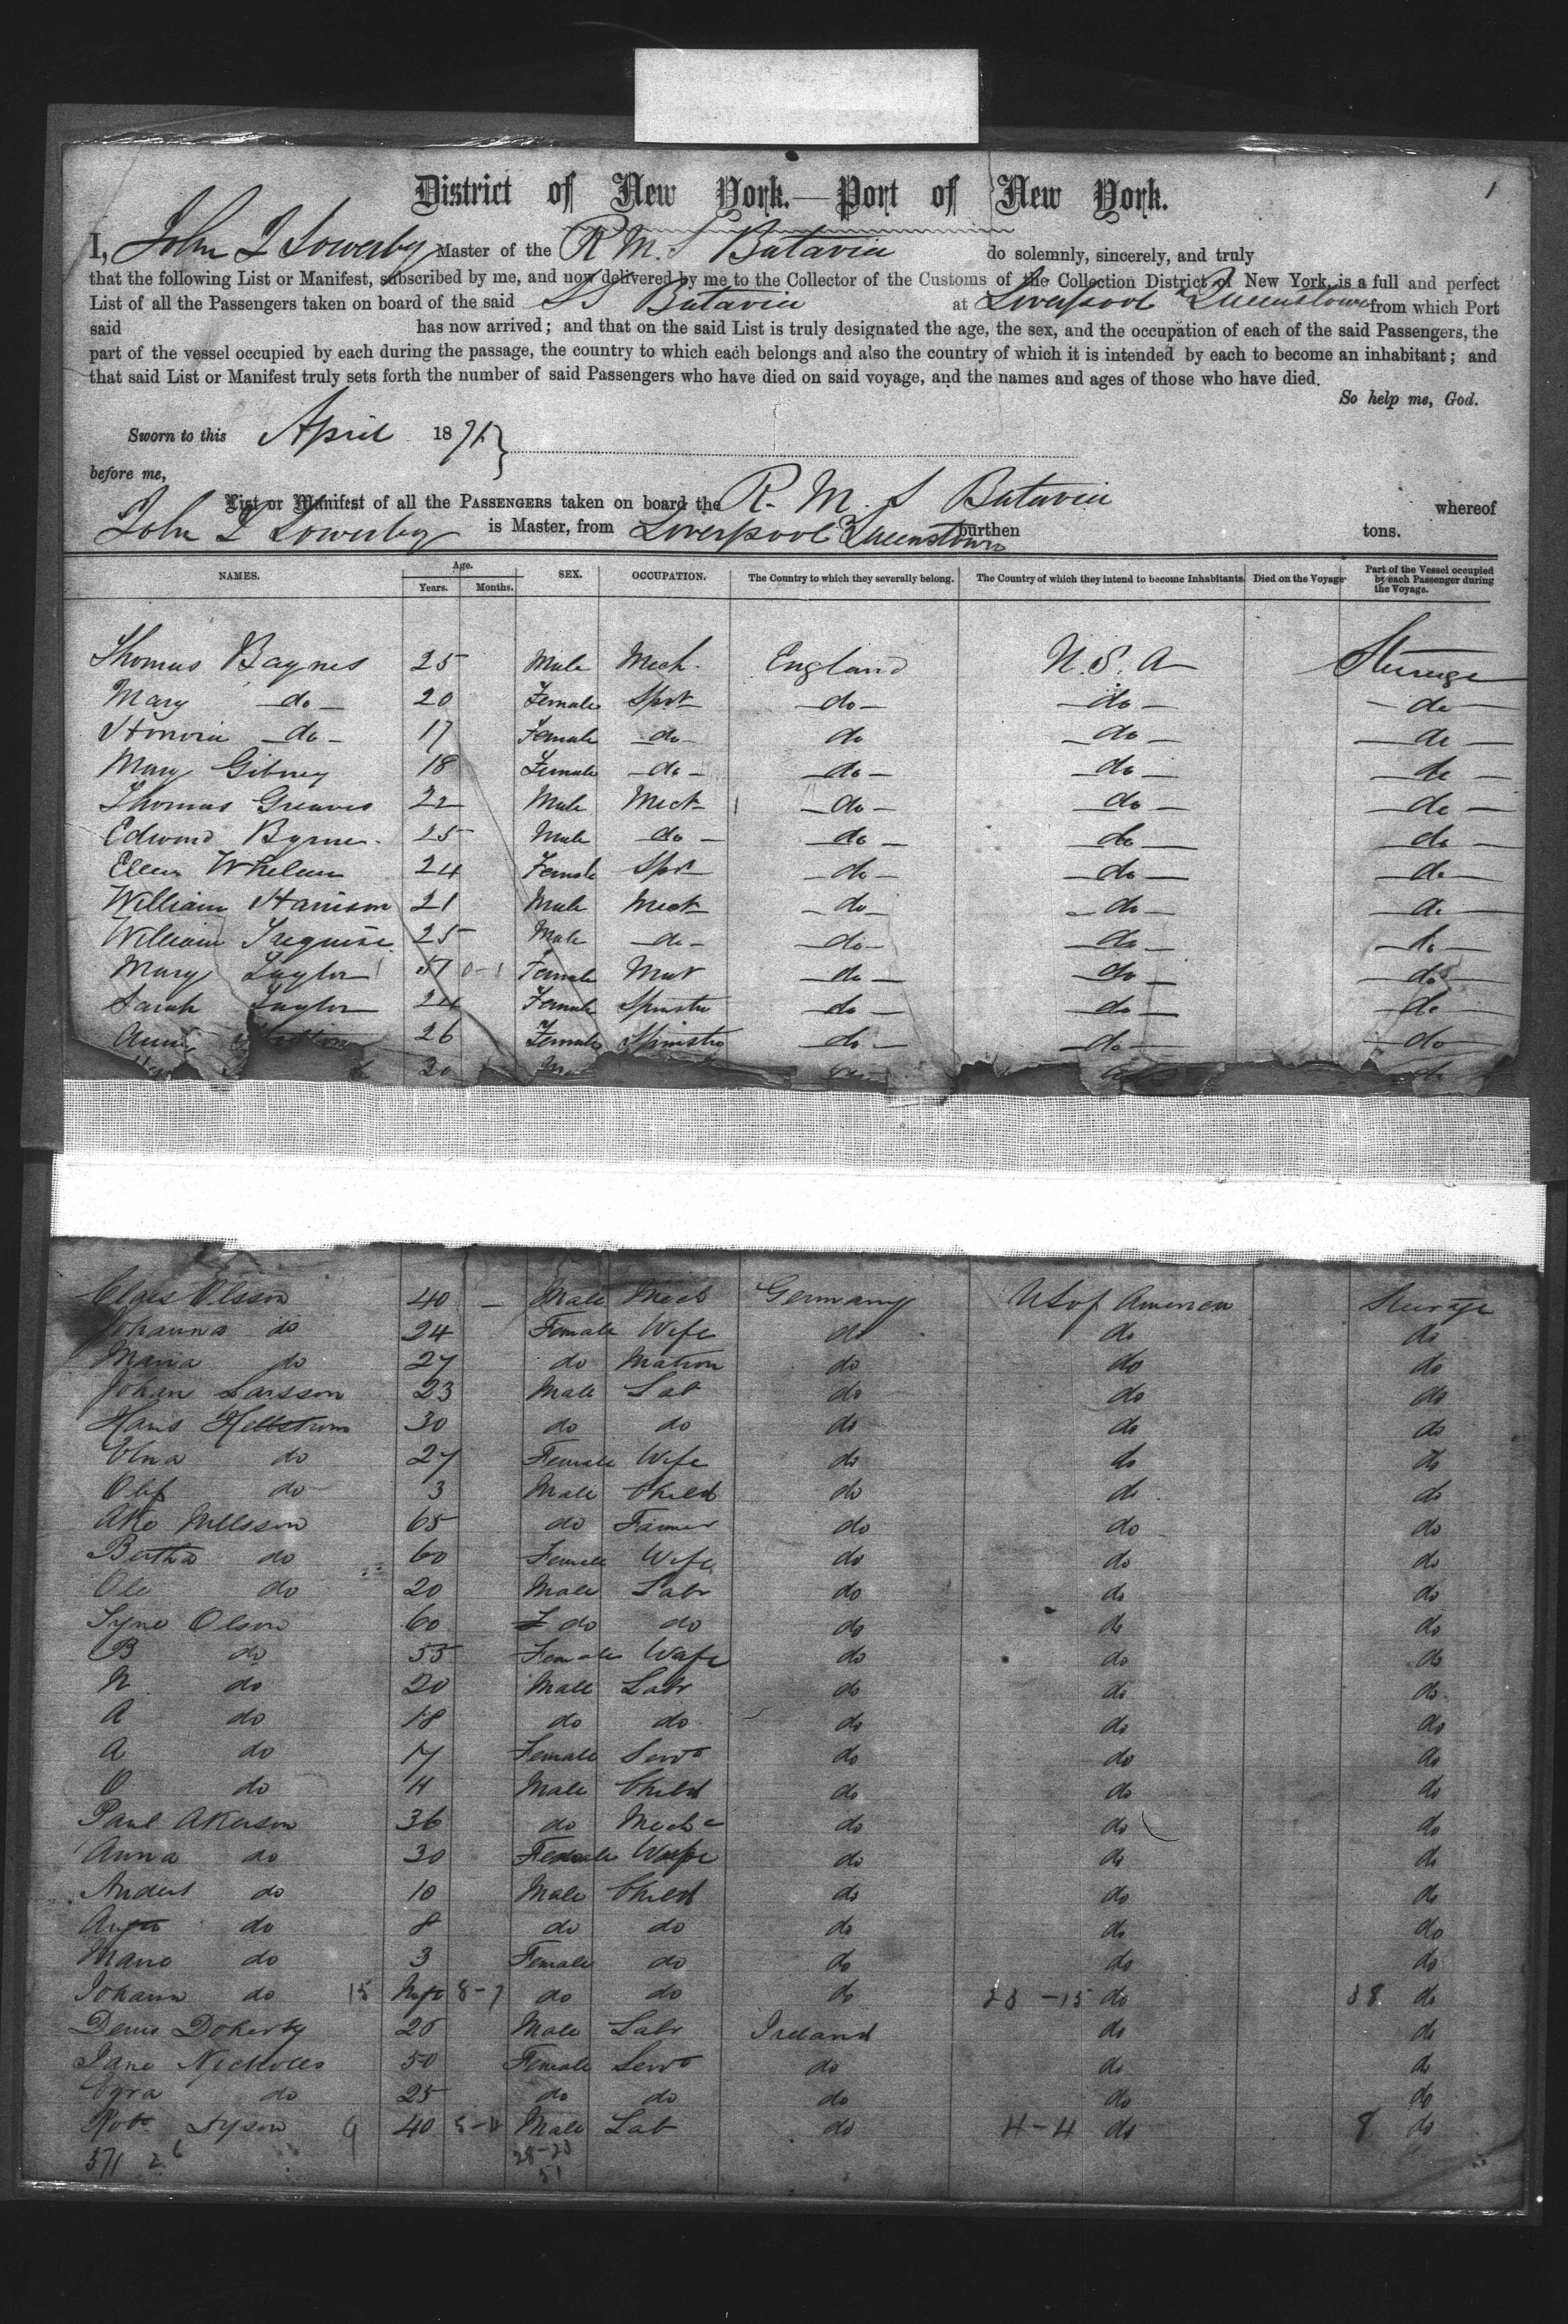 1
District of New York.—Port of New York.
I, John I Lowerby Master of the R. M. S Batavia do solemnly, sincerely, and truly
that the following List or Manifest, subscribed by me, and now delivered by me to the Collector of the Customs of the Collection District of New York, is a full and perfect
List of all the Passengers taken on board of the said SS Batavia at Liverpool & Queenstown from which Port
said has now arrived; and that on the said List is truly designated the age, the sex, and the occupation of each of the said Passengers, the
part of the vessel occupied by each during the passage, the country to which each belongs and also the country of which it is intended by each to become an inhabitant; and
that said List or Manifest truly sets forth the number of said Passengers who have died on said voyage, and the names and ages of those who have died.
So help me, God.
Sworn to this April 1871
before me,
List or Manifest of all the PASSENGERS taken on board the R. M. S Batavia whereof
John I Lowerby is Master, from Liverpool & Queenstown burthen tons.
NAMES. Age. Years. Months. SEX. OCCUPATION. The Country to which they severally belong. The Country of which they intend to become Inhabitants. Died on the Voyage Part of the Vessel occupied by each Passenger during the Voyage.
Thomas Baynes 25 Male Mech. England U. S. A Steerage
Mary do 20 Female Spst do do do
Honora do 17 Female do do do do
Mary Gibney 18 Female do do do do
Thomas Greaves 22 Male Mech do do do
Edward Byrne 25 Male do do do do
Ellen Whelan 24 Female Spst do do do
William Harrison 21 Male Mech do do do
William 25 Male do do do do
Mary Taylor 51 0-1 Female Mat do do do
Sarah Taylor 24 Female Spinster do do do
Annie 26 Female Spinster do do do
20 M do do
Claes Olsson 40 — Male Mech Germany US of America Steerage
Johanna do 24 Female Wife do do do
Maria do 27 do Matron do do do
Johan Larsson 23 Male Lab do do do
Hans Hellstrom 30 do do do do do
Elna do 27 Female Wife do do do
Olof do 3 Male Child do do do
Ake Nillsson 65 do Farmer do do do
Bertha do 60 Female Wife do do do
Ole do 20 Male Labr do do do
Olson 60 do do do do do
B do 55 Female Wife do do do
N do 20 Male Labr do do do
A do 18 do do do do do
A do 17 Female Servt do do do
O do 11 Male Child do do do
Paul Akerson 36 do Mechc do do do
Anna do 30 Female Wife do do do
Anders do 10 Male Child do do do
do 8 do do do do do
Marie do 3 Female do do do do
Johann do 15 Inft 8-7 do do do 23-15 do 38 do
Denis Doherty 26 Male Labr Ireland do do
Jane Nicholls 50 Female Servt do do do
do 25 do do do do do
Robt Tyson 9 40 5-4 Male Lab do 4-4 do 8 do
371 26 28-23
51